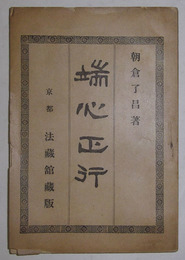 朝倉了昌著
端心正行
京都 法藏館藏版